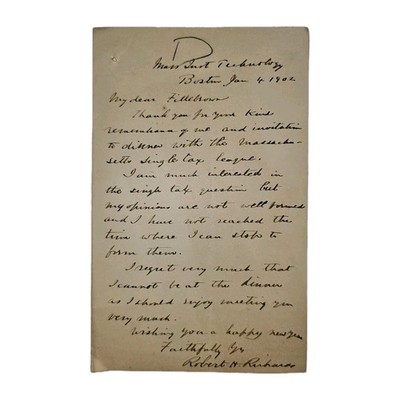 Mass Inst Technology
Boston Jan 4 1902
My dear Fillebrown
Thank you for your kind
remembrance of me and invitation
to dinner with the Massachu-
setts Single tax league.
I am much interested in
the single tax question but
my opinions are not well formed
and I have not reached the
time where I can stop to
form them.
I regret very much that
I cannot be at the dinner
as I should enjoy meeting you
very much.
Wishing you a happy new year
Faithfully Yrs
Robert H Richards